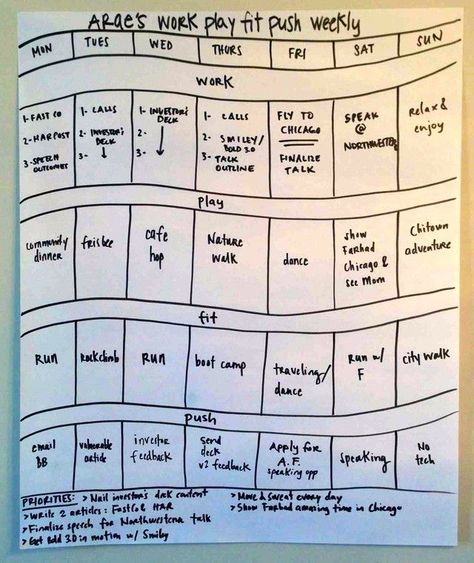 ARAE'S WORK PLAY FIT PUSH WEEKLY
MON TUES WED THURS FRI SAT SUN
WORK
1- FAST CO
2- HAR POST
3- SPEECH OUTCOMES
1- CALLS
2- INVESTOR'S DECK
3-
1- INVESTOR'S DECK
2-
3-
1- CALLS
2- SMILEY/ BOLD 3.0
3- TALK OUTLINE
FLY TO
CHICAGO
FINALIZE
TALK
SPEAK
@
NORTHWESTERN
Relax &
enjoy
play
community
dinner
frisbee
cafe
hop
Nature
walk
dance
show
Farhad
Chicago &
see Mom
Chitown
adventure
fit
RUN
Rockclimb
RUN
boot camp
traveling/
dance
RUN w/
F
city walk
push
email
BB
vulnerable
article
investor
feedback
send
deck
v2 feedback
Apply for
A.F.
speaking opp
Speaking
No
tech
PRIORITIES: > Nail investor's deck content
> Write 2 articles: FastCo & HAR
> Finalize speech for Northwestern talk
> Get Bold 3.0 in motion w/ Smiley
> Move & sweat every day
> Show Farhad amazing time in Chicago